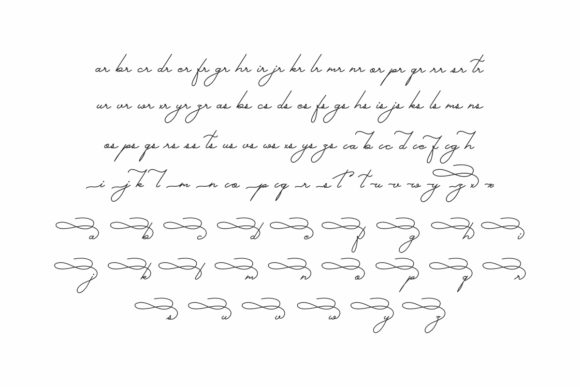 ar br cr dr er fr gr hr ir jr kr lr mr nr or pr qr rr sr tr
ur vr wr xr yr zr as bs cs ds es fs gs hs is js ks ls ms ns
os ps qs rs ss ts us vs ws xs ys zs ca b cc d ce f cg h
i j k l m n co p cq r s t t u v w y z x
a b c d e f g h i
j k l m n o p q r
s u v w y z